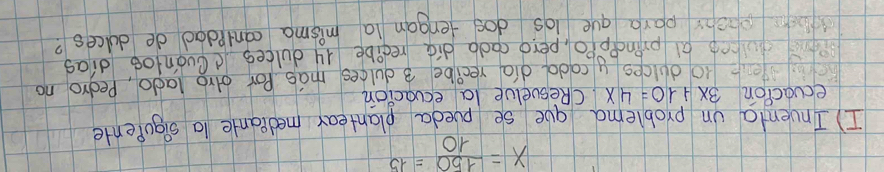 X = 150/10 = 15
I) Inventa un problema que se pueda plantear mediante la siguiente
ecuación 3x + 10 = 4x. ¿Resuelve la ecuación
tiene 10 dulces y cada día recibe 3 dulces más. Por otro lado, Pedro no
dulces al principio, pero cada día recibe 14 dulces ¿Cuántos días
pasar para que los dos tengan la misma cantidad de dulces?